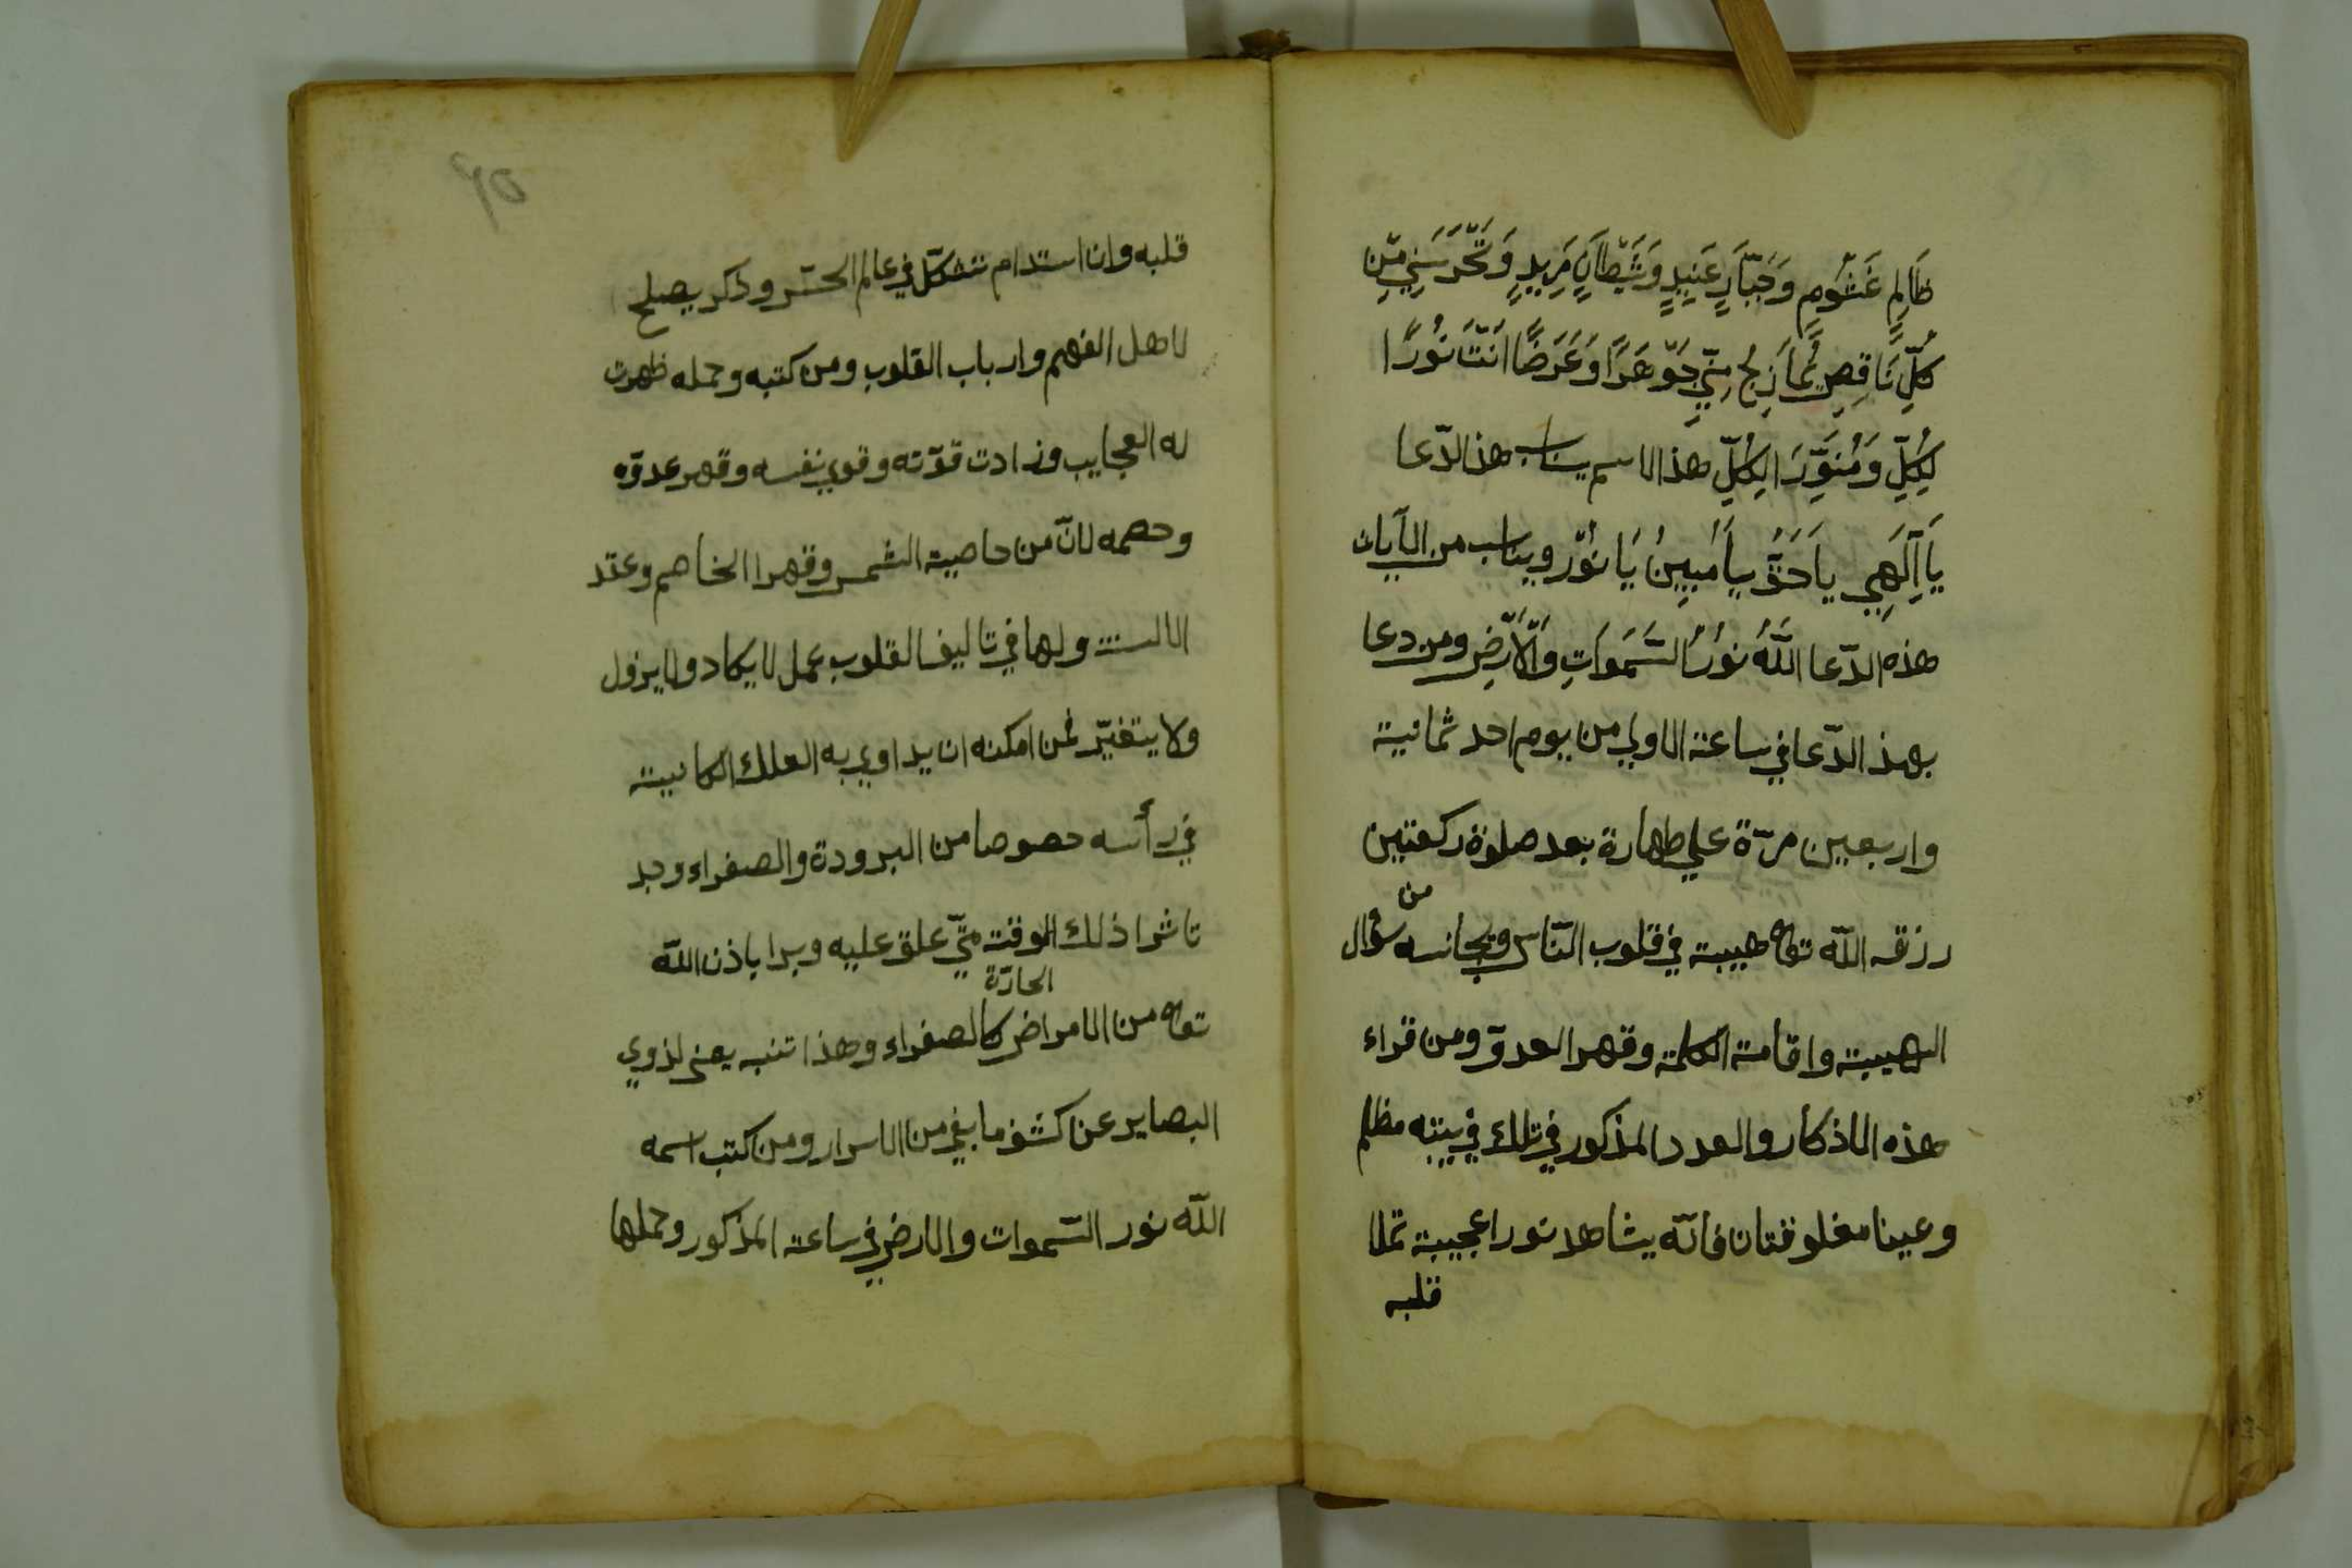 ظَالِمٍ غَشُومٍ وَجَبَّارٍ عَنِيدٍ وَشَيْطَانٍ مَرِيدٍ وَتَحْرَسَنِي مِنْ
كُلِّ نَاقِصٍ يُمَازِجُ مِنِّي جَوْهَرًا وَعَرَضًا اَنْتَ نُورًا
لِكُلِّ وَمُنَوِّرَ الِكُلِّ هذا الاسم يناسب هذا الدّعا
يَا اَلَهِي يا حَقُّ يا مُبِينُ يَا نُوْر ويناسب من الآيات
هذه الدّعا اللّهُ نُورُ السَّمَوَاتِ وَالْاَرْضِ ومن دعا
بهذ الدّعا في ساعة الاولي من يوم احد ثمانية
واربعين مرّة علي طهارة بعد صلوة ركعتين
رزقه اللّه تعا هيبة في قلوب النّاس وتجانسه من سؤال
الهيبة واقامة الكلمة وقهر العدوّ ومن قراء
هذه الاذكار والعدد المذكور في تلك في بيته مظلم
وعينا مغلوقتان فانّه يشاهد نورا عجيبة تملا
قلبه
٩٥
قلبه وان استدام تتشكّل في عالم الحسّ وذكر يصلح
لاهل الفهم وارباب القلوب ومن كتبه وحمله ظهرت
له العجايب وزادت قوّته وقوي نفسه وقهر عدوّه
وحصمه لانّ من حاصية الشمس وقهر الخاصم وعقد
الالسنة ولها في تاليف القلوب عمل لا يكاد ولا يزول
ولا يتغيّر فمن امكنه ان يداوي به العلك الكاىية
في رأسه حصوصا من البرودة والصفراء وجد
تاثرا ذلك الوقت متّي علق عليه وبرا باذن اللّه
تعا من الامراض الحارّة كالصفراء وهذا تنبه يعنى لذوي
البصاير عن كشف ما بقي من الاسرار ومن كتب اسمه
اللّه نور السّموات والارض في ساعة المذكور وحملها